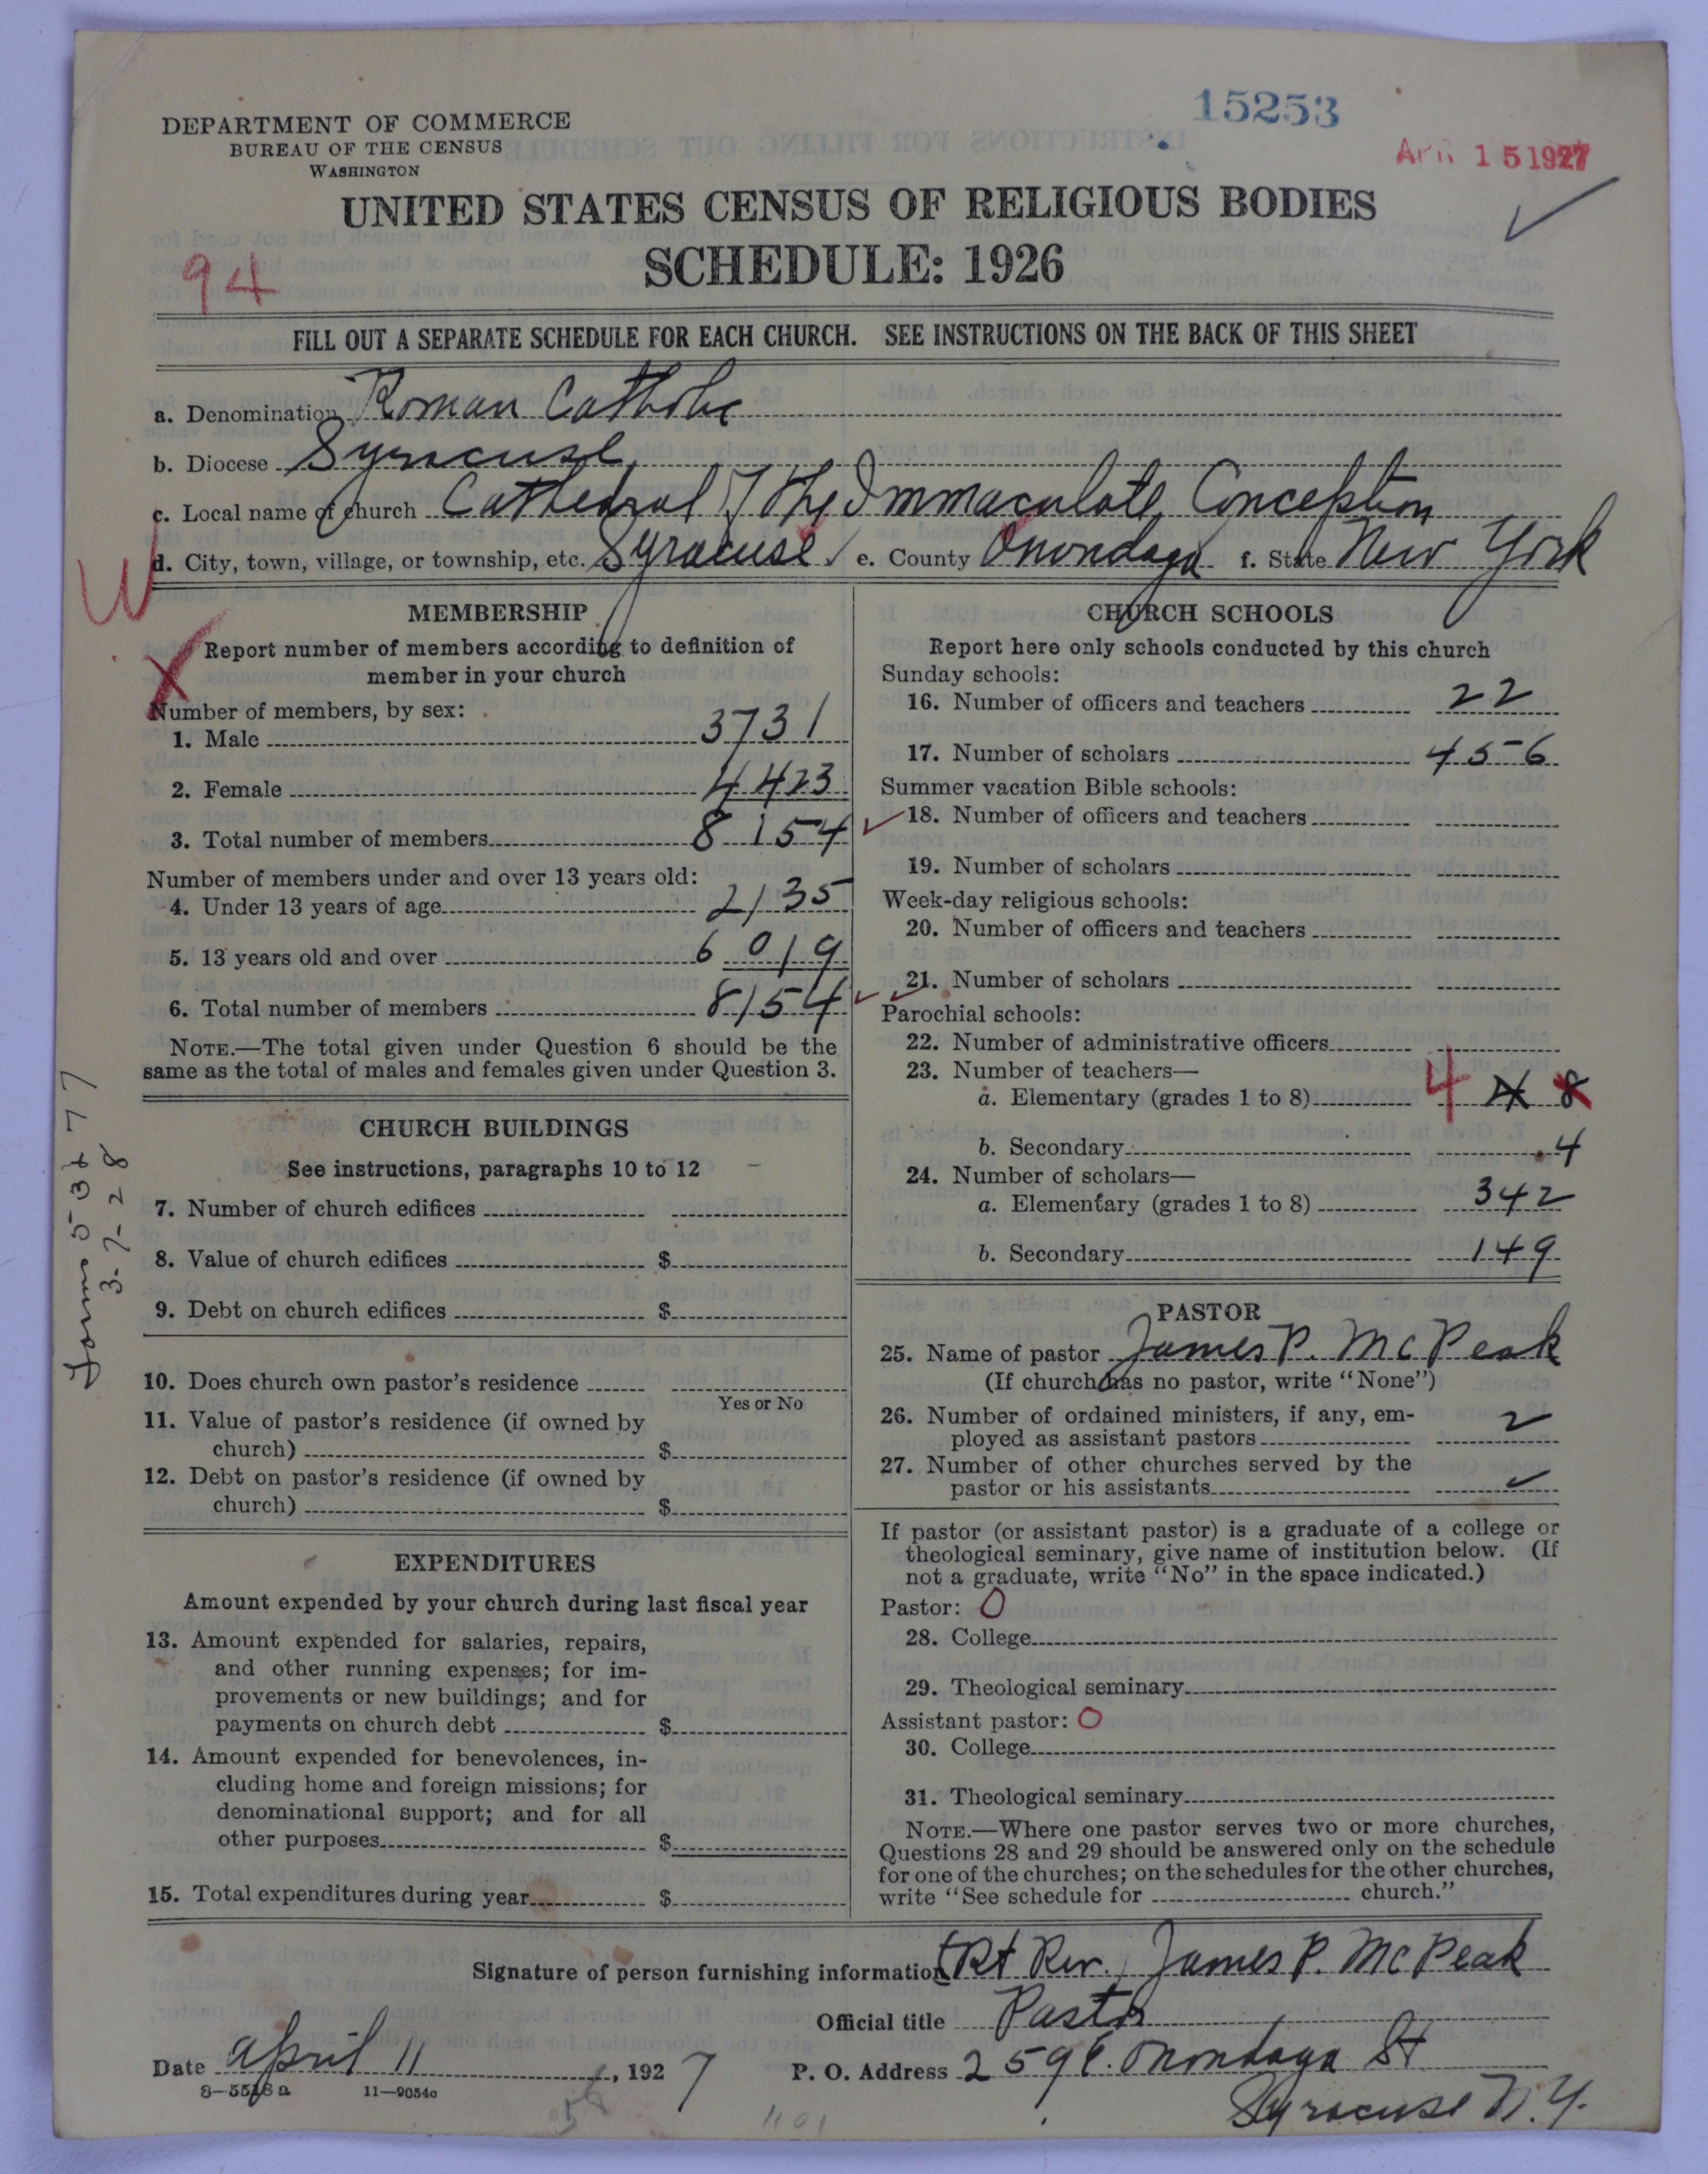 15253
APR 15 1927
DEPARTMENT OF COMMERCE
BUREAU OF THE CENSUS
WASHINGTON
UNITED STATES CENSUS OF RELIGIOUS BODIES
SCHEDULE: 1926
94
FILL OUT A SEPARATE SCHEDULE FOR EACH CHURCH. SEE INSTRUCTIONS ON THE BACK OF THIS SHEET
a. Denomination Roman Catholic
b. Diocese Syracuse
c. Local name of church Cathedral of the Immaculate Conception
d. City, town, village, or township, etc. Syracuse e. County Onondaga f. State New York
W
X
MEMBERSHIP
Report number of members according to definition of
member in your church
Number of members, by sex:
1. Male 3731
2. Female 4423
3. Total number of members 8154
Number of members under and over 13 years old:
4. Under 13 years of age 2135
5. 13 years old and over 6019
6. Total number of members 8154
NOTE.—The total given under Question 6 should be the
same as the total of males and females given under Question 3.
CHURCH BUILDINGS
See instructions, paragraphs 10 to 12
7. Number of church edifices
8. Value of church edifices $
9. Debt on church edifices $
10. Does church own pastor's residence
Yes or No
11. Value of pastor's residence (if owned by
church) $
12. Debt on pastor's residence (if owned by
church) $
EXPENDITURES
Amount expended by your church during last fiscal year
13. Amount expended for salaries, repairs,
and other running expenses; for im-
provements or new buildings; and for
payments on church debt $
14. Amount expended for benevolences, in-
cluding home and foreign missions; for
denominational support; and for all
other purposes $
15. Total expenditures during year $
3-7-28
CHURCH SCHOOLS
Report here only schools conducted by this church
Sunday schools:
16. Number of officers and teachers 22
17. Number of scholars 456
Summer vacation Bible schools:
18. Number of officers and teachers
19. Number of scholars
Week-day religious schools:
20. Number of officers and teachers
21. Number of scholars
Parochial schools:
22. Number of administrative officers
23. Number of teachers—
a. Elementary (grades 1 to 8) 4 8
b. Secondary 4
24. Number of scholars—
a. Elementary (grades 1 to 8) 342
b. Secondary 149
PASTOR
25. Name of pastor James P. McPeak
(If church has no pastor, write "None")
26. Number of ordained ministers, if any, em-
ployed as assistant pastors 2
27. Number of other churches served by the
pastor or his assistants
If pastor (or assistant pastor) is a graduate of a college or
theological seminary, give name of institution below. (If
not a graduate, write "No" in the space indicated.)
Pastor: 0
28. College
29. Theological seminary
Assistant pastor: 0
30. College
31. Theological seminary
NOTE.—Where one pastor serves two or more churches,
Questions 28 and 29 should be answered only on the schedule
for one of the churches; on the schedules for the other churches,
write "See schedule for church."
Signature of person furnishing information (Rt Rev.) James P. McPeak
Official title Pastor
Date April 11, 1927 P. O. Address 259 E. Onondaga St
Syracuse N.Y.
8-5518a 11-9054c
1101